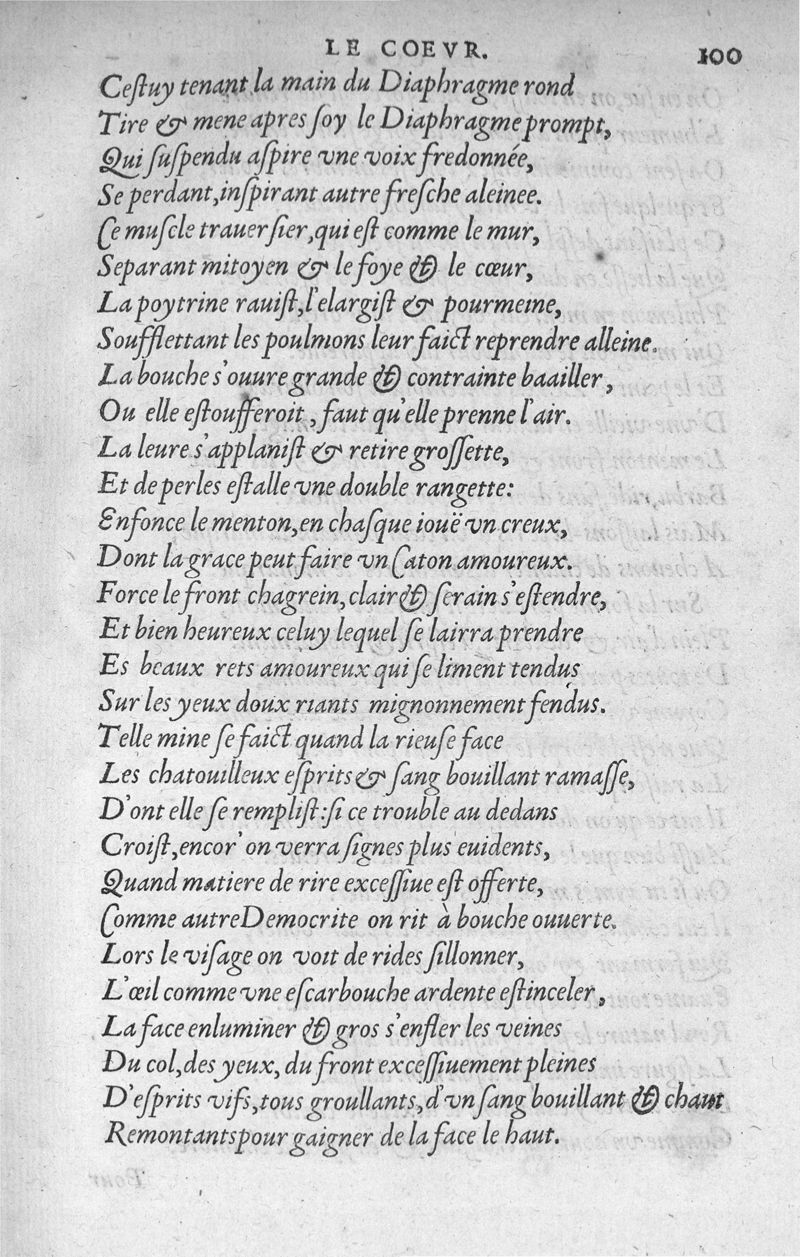 LE COEVR. 100
Ceſtuy tenant la main du Diaphragme rond
Tire & mene apres ſoy le Diaphragme prompt,
Qui ſuſpendu aſpire vne voix fredonnée,
Se perdant, inſpirant autre freſche aleinee.
Ce muſcle trauerſier, qui eſt comme le mur,
Separant mitoyen & le foye & le cœur,
La poytrine rauiſt, l'elargiſt & pourmeine,
Soufflettant les poulmons leur faict reprendre alleine.
La bouche s'ouure grande & contrainte baailler,
Ou elle eſtoufferoit, faut qu'elle prenne l'air.
La leure s'applaniſt & retire groſſette,
Et de perles eſtalle vne double rangette:
Enfonce le menton, en chaſque iouë vn creux,
Dont la grace peut faire vn Caton amoureux.
Force le front chagrein, clair & ſerain s'eſtendre,
Et bien heureux celuy lequel ſe lairra prendre
Es beaux rets amoureux qui ſe liment tendus
Sur les yeux doux riants mignonnement fendus.
Telle mine ſe faict quand la rieuſe face
Les chatouilleux eſprits & ſang bouillant ramaſſe,
D'ont elle ſe rempliſt: ſi ce trouble au dedans
Croiſt, encor' on verra ſignes plus euidents,
Quand matiere de rire exceſſiue eſt offerte,
Comme autre Democrite on rit à bouche ouuerte.
Lors le viſage on voit de rides ſillonner,
L'œil comme vne eſcarbouche ardente eſtinceler,
La face enluminer & gros s'enfler les veines
Du col, des yeux, du front exceſſiuement pleines
D'eſprits vifs, tous groullants, d'vn ſang bouillant & chaut
Remontants pour gaigner de la face le haut.